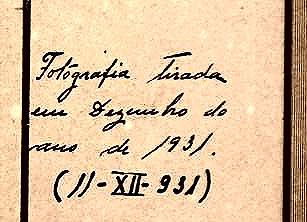 Fotografia tirada
em Dezembro do
ano de 1931.
(11-XII-931)